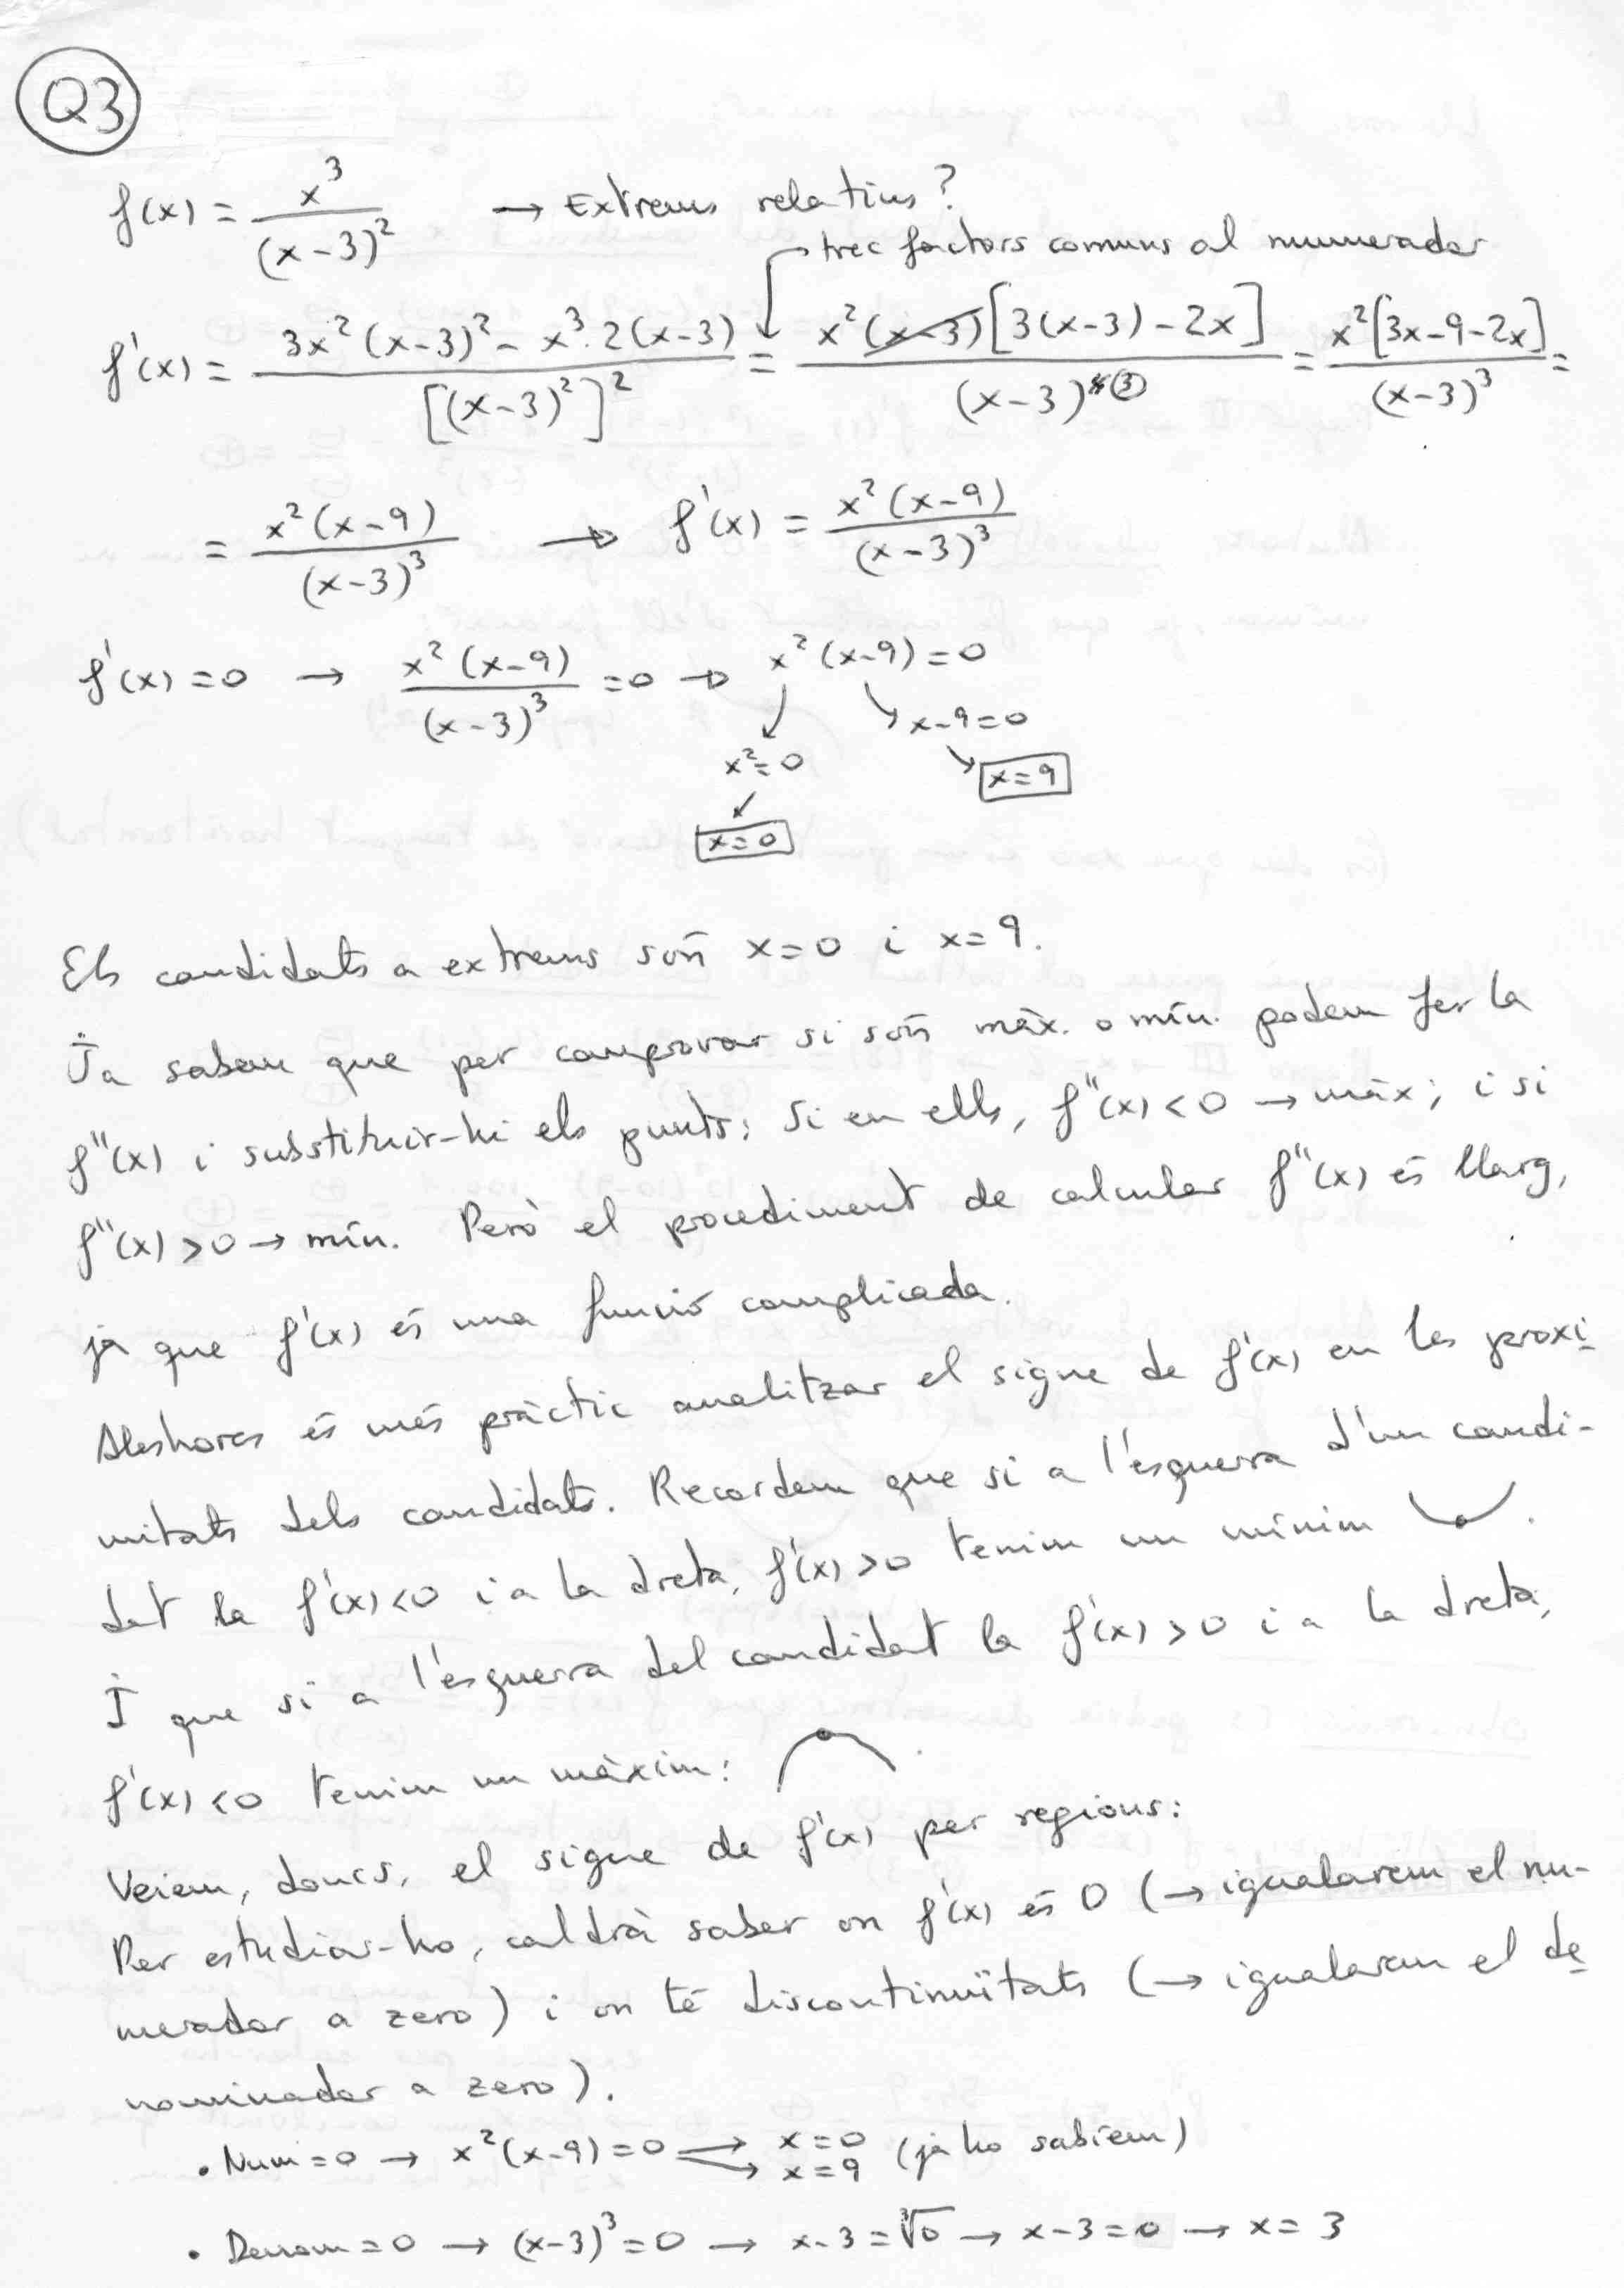 Q3
f(x) = x³/(x-3)² → Extrems relatius?
trec factors comuns al numerador
f'(x) = (3x²(x-3)² - x³·2(x-3))/[(x-3)²]² = x²(x-3)[3(x-3)-2x]/(x-3)⁴③ = x²[3x-9-2x]/(x-3)³ =
= x²(x-9)/(x-3)³ → f'(x) = x²(x-9)/(x-3)³
f'(x) = 0 → x²(x-9)/(x-3)³ = 0 → x²(x-9) = 0
x-9=0
x²=0 x=9
x=0
Els candidats a extrems són x=0 i x=9.
Ja sabem que per comprovar si són màx. o mín. podem fer la
f''(x) i substituir-hi els punts: Si en ells, f''(x)<0 → màx; i si
f''(x)>0 → mín. Però el procediment de calcular f''(x) és llarg,
ja que f'(x) és una funció complicada.
Aleshores és més pràctic analitzar el signe de f'(x) en les proxi
mitats dels candidats. Recordem que si a l'esquerra d'un candi-
dat la f'(x)<0 i a la dreta, f'(x)>0 tenim un mínim .
I que si a l'esquerra del candidat la f'(x)>0 i a la dreta,
f'(x)<0 tenim un màxim: .
Veiem, doncs, el signe de f'(x) per regions:
Per estudiar-ho, caldrà saber on f'(x) és 0 (→ igualarem el nu-
merador a zero) i on té discontinuïtats (→ igualarem el de
nominador a zero).
• Num=0 → x²(x-9)=0 → x=0 → x=9 (ja ho sabíem)
• Denom=0 → (x-3)³=0 → x-3=∛0 → x-3=0 → x=3